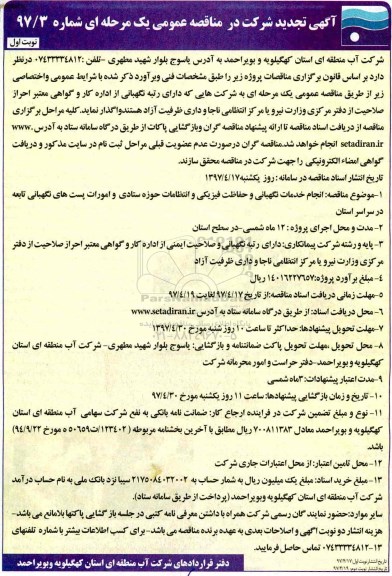 آگهی تجدید شرکت در مناقصه عمومی یک مرحله ای شماره ۹۷/۳
نوبت اول
شرکت آب منطقه ای استان کهگیلویه و بویراحمد به آدرس یاسوج بلوار شهید مطهری -تلفن :۰۷۴۳۳۳۳۴۸۱۲ درنظر
دارد بر اساس قانون برگزاری مناقصات پروژه زیر را طبق مشخصات فنی وبرآورد ذکر شده با شرایط عمومی واختصاصی
زیر از طریق مناقصه عمومی یک مرحله ای به شرکت هایی که دارای رتبه نگهبانی از اداره کار و گواهی معتبر احراز
صلاحیت از دفتر مرکزی وزارت نیرو یا مرکز انتظامی ناجا و دارای ظرفیت آزاد هستندواگذار نماید. کلیه مراحل برگزاری
مناقصه از دریافت اسناد مناقصه تا ارائه پیشنهاد مناقصه گران وبازگشایی پاکات از طریق درگاه سامانه ستاد به آدرس .www
setadiran.ir انجام خواهد شد.مناقصه گران درصورت عدم عضویت قبلی مراحل ثبت نام در سایت مذکور و دریافت
گواهی امضاء الکترونیکی را جهت شرکت در مناقصه محقق سازند.
تاریخ انتشار اسناد مناقصه در سامانه : روز یکشنبه ۱۳۹۷/۴/۱۷
۱-موضوع مناقصه: انجام خدمات نگهبانی و حفاظت فیزیکی و انتظامات حوزه ستادی و امورات پست های نگهبانی تابعه
در سراسر استان
۲-مدت و محل اجرای پروژه : ۱۲ ماه شمسی-در سطح استان
۳- پایه و رشته شرکت پیمانکاری: دارای رتبه نگهبانی و صلاحیت ایمنی از اداره کار و گواهی معتبر احراز صلاحیت از دفتر
مرکزی وزارت نیرو یا مرکز انتظامی ناجا و دارای ظرفیت آزاد
۴-مبلغ برآورد پروژه:۱۴۰۱۶۲۲۷۶۵۷ ریال
۵-مهلت زمانی دریافت اسناد مناقصه:از تاریخ ۹۷/۴/۱۷ لغایت ۹۷/۴/۱۹
۶-محل دریافت اسناد: از طریق درگاه سامانه ستاد به آدرس www.setadiran.ir
۷-مهلت تحویل پیشنهادها: حداکثر تا ساعت ۱۰ روز شنبه مورخ ۱۳۹۷/۴/۳۰
۸- محل تحویل ،مهلت تحویل پاکت ضمانتنامه و بازگشایی: یاسوج بلوار شهید مطهری- شرکت آب منطقه ای استان
کهگیلویه و بویراحمد-دفتر حراست و امور محرمانه شرکت
۹-مدت اعتبار پیشنهادات:۳ماه شمسی
۱۰- تاریخ و زمان بازگشایی پیشنهادها: ساعت ۱۱ روز یکشنبه مورخ ۹۷/۴/۳۰
۱۱- نوع و مبلغ تضمین شرکت در فرآینده ارجاع کار: ضمانت نامه بانکی به نفع شرکت سهامی آب منطقه ای استان
کهگیلویه و بویراحمد معادل ۷۰۰۸۱۱۳۸۳ ریال مطابق با آخرین بخشنامه مربوطه ( ۱۲۳۴۰۲/ت ۵۰۶۵۹ ه مورخ ۹۴/۹/۲۲)
باشد.
۱۲- محل تامین اعتبار: از محل اعتبارات جاری شرکت
۱۳- مبلغ خرید اسناد: مبلغ یک میلیون ریال به شمار حساب به ۲۱۷۵۰۸۴۰۳۲۰۰۲ سیبا نزد بانک ملی به نام حساب درآمد
شرکت آب منطقه ای استان کهگیلویه وبویراحمد (پرداخت از طریق سامانه ستاد).
سایر موارد:حضور نمایندگان رسمی شرکت همراه با داشتن معرفی نامه کتبی در جلسه باز گشایی پاکتها بلامانع می باشد-
هزینه انتشار دو نوبت آگهی و اصلاحات بعدی به عهده برنده مناقصه می باشد- برای کسب اطلاعات بیشتر با شماره تلفنهای
۱۲-۰۷۴۳۳۳۳۴۸۱۳ تماس حاصل فرمایید.
دفتر قراردادهای شرکت آب منطقه ای کهگیلویه وبویراحمد